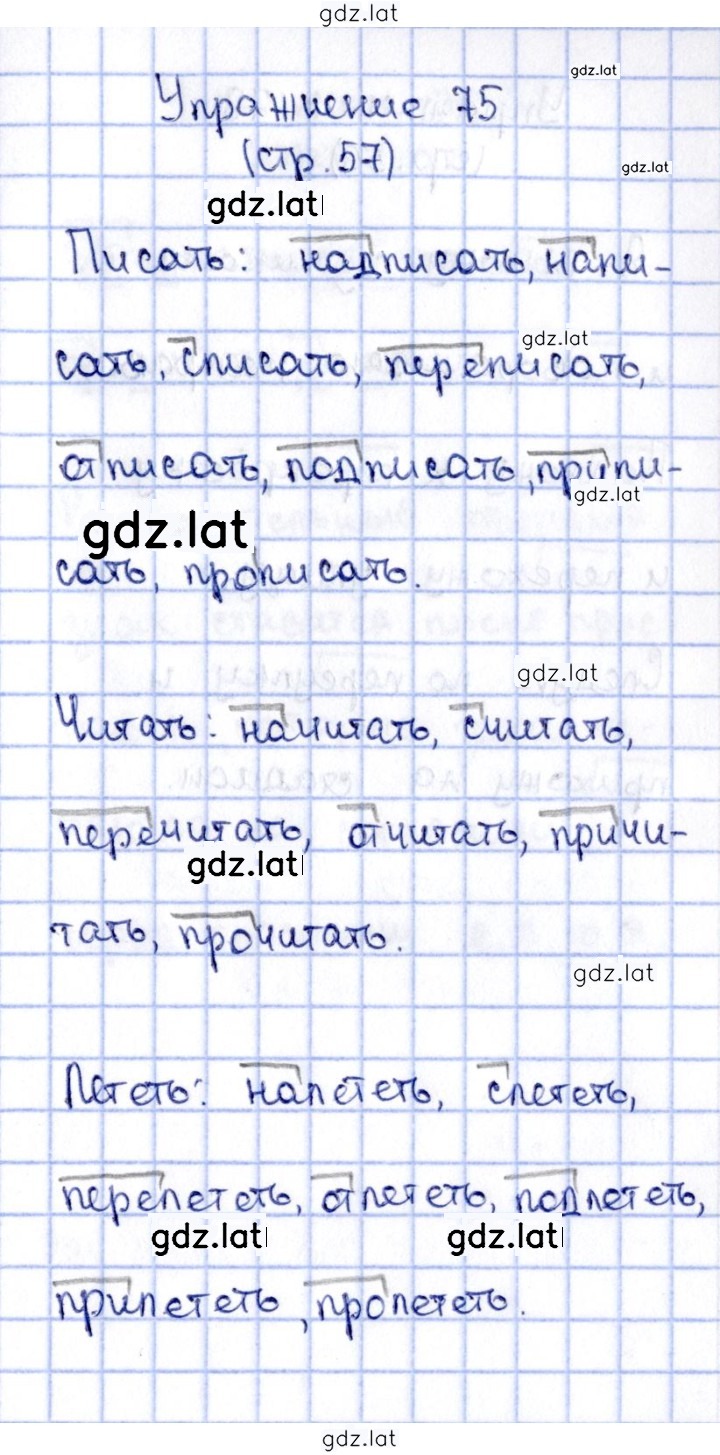 gdz.lat
gdz.lat
Упражнение 75
(стр. 57)
gdz.lat
gdz.lat
Писать: надписать, напи-
gdz.lat
сать, списать, переписать,
отписать, подписать, припи-
gdz.lat
gdz.lat
сать, прописать.
gdz.lat
Читать: начитать, считать,
перечитать, отчитать, причи-
gdz.lat
тать, прочитать.
gdz.lat
Лететь: налететь, слететь,
перелететь, отлететь, подлететь,
gdz.lat gdz.lat
прилететь, пролететь.
gdz.lat